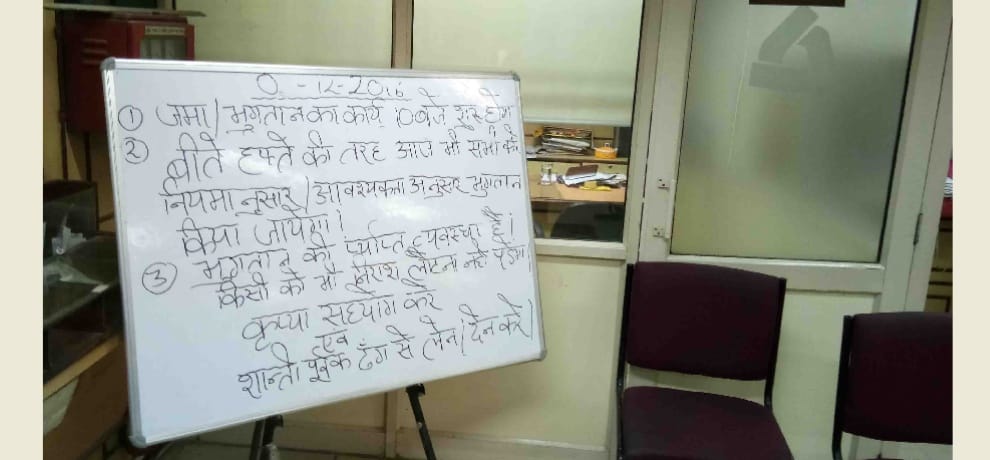 0 -12-2016
① जमा/भुगतान का कार्य 10 बजे शुरू होगा
② बीते हफ्ते की तरह आज भी सभी को
नियमानुसार/आवश्यकता अनुसार भुगतान
किया जायेगा।
③ भुगतान की पर्याप्त व्यवस्था है।
किसी को भी निराश लौटना नही पड़ेगा।
कृप्या सहयोग करे
एवं
शान्ती पूर्वक ढंग से लेन/देन करे।